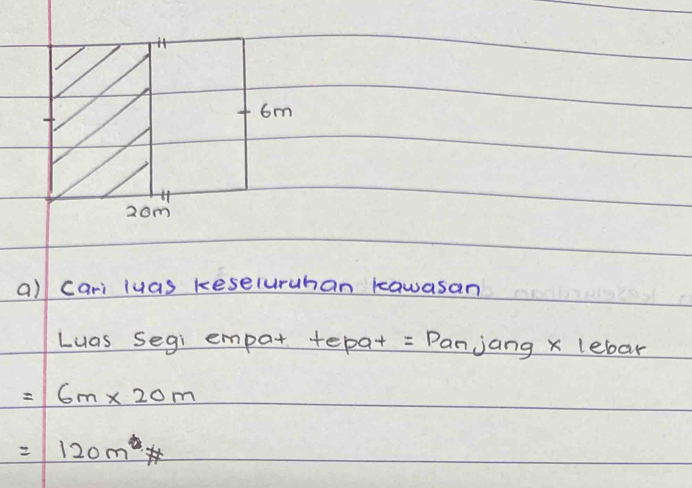 6m
20m
a) Cari luas keseluruhan kawasan
Luas Segi empat tepat = Panjang x lebar
= 6m x 20m
= 120m² #